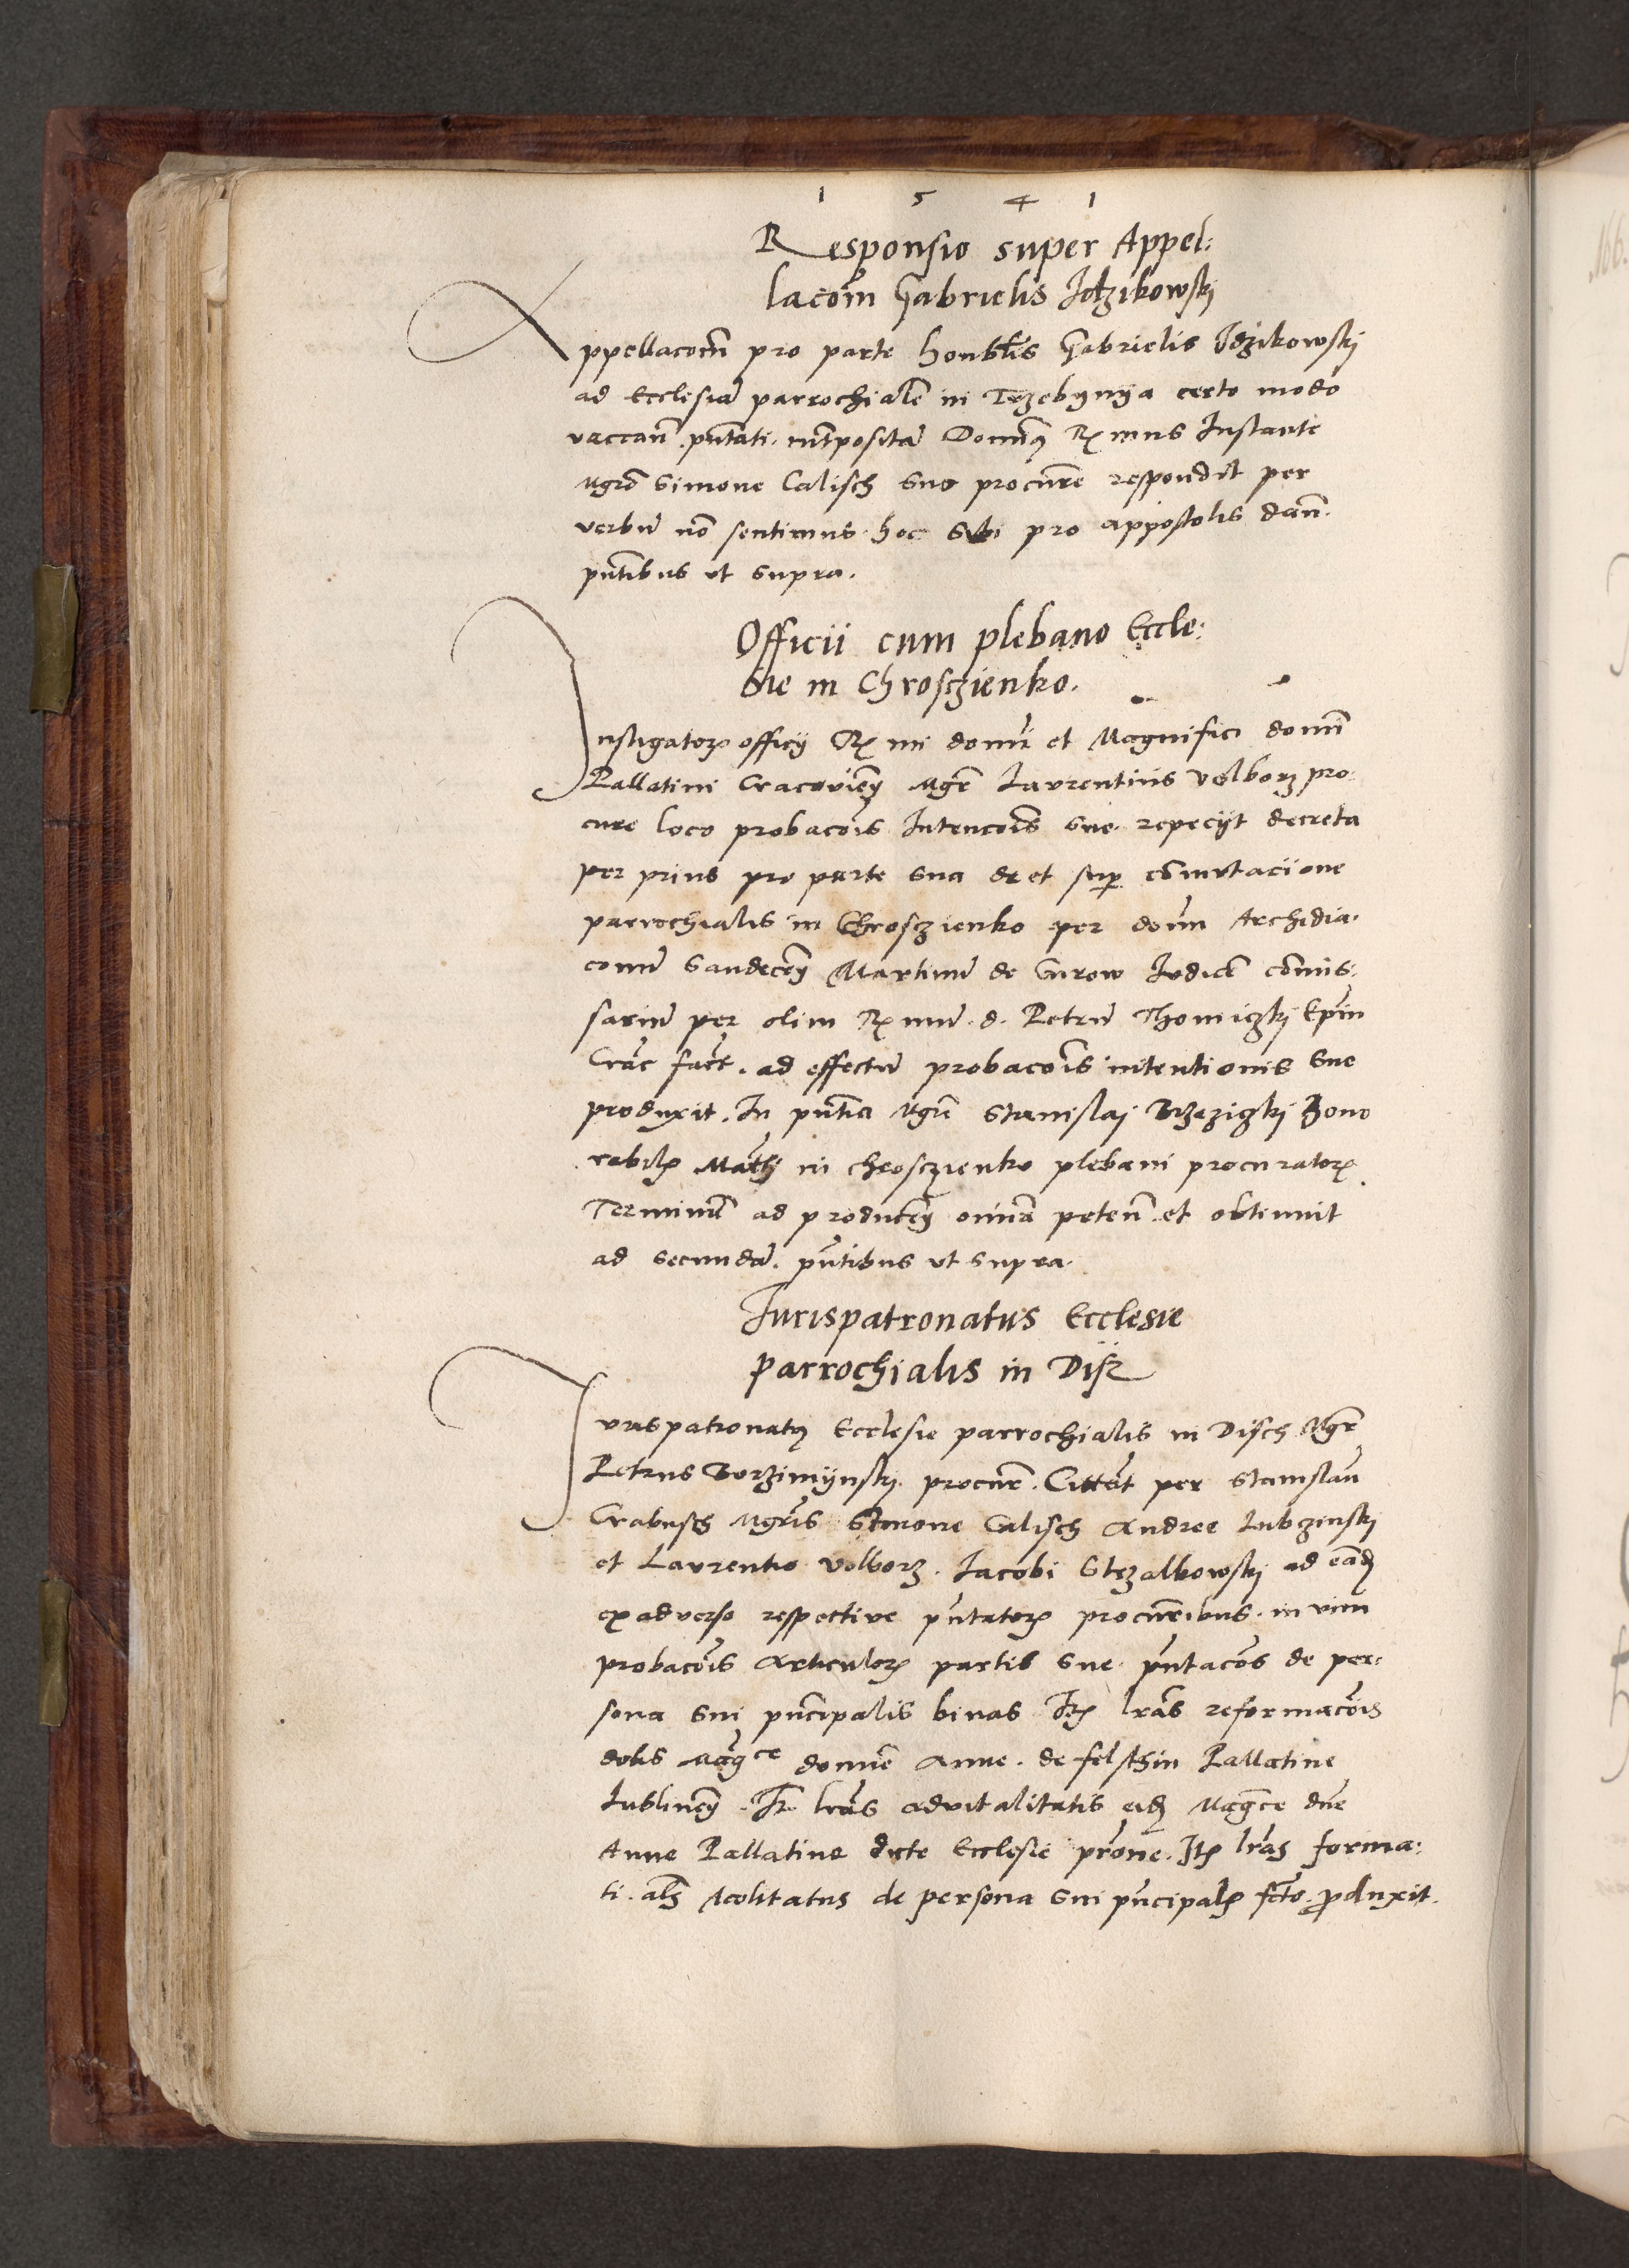 1 5 4 1
Responsio super Appel:
lacom̃ Gabrielis Idzikowskj
Appellacom̃ pro parte honblis Gabrielis Idzikowskj
ad Ecclesiã parrochialẽ in Trzebynya certo modo
vaccan̄ . pn̄tati . intposita Dominꝰ Rmus Instante
mgrõ Simone Calisch suo procurē respondit per
verbũ nõ sentimus . hoc sibi pro appostolis dan̄ .
pn̄tibus ut supra .
Officii cum plebano Eccle:
sie in Chrosczienko .
Instigatorꝭ officij Rmi domi et Magnifici domī
Pallatini Cracovień mgr̄ Laurentius volborz pro:
cure loco probacoīs Intencoīs sue . repecijt decreta
per prius pro parte sua de et sup comutacijone
parrochialis in Chrosczienko per dom̄ Archidia:
conũ Sandeceń Martinũ de Gurow Iudicẽ comis:
sariũ per olim Rmũ . d . Petrũ Thomiczkj Ep̄m
Crac̄ fact̄ . ad effectũ probacoīs intentionis sue
produxit . In pn̄tia mgrī Stanislaj Brzezigkj hono
rabilꝭ Math̄ in chrosczienko plebani procuratorꝭ
Terminũ ad producen̄ omnia peten̄ . et obtinuit
ad secundã . pn̄tibus ut supra .
Iurispatronatus Ecclesie
parrochialis in Dijsz
Iurispatronatꝰ Ecclesie parrochialis in Disch Mgr̄
Petrus Borzimijnskj . procurē . Cittāt per Stanislaũ
Crabusch mgrīs Simone Calisch Andree Lubczinskj
et Laurentio volborz . Iacobi Strzalkowskj ad eañd
ex adverso respective pn̄tatorꝭ procurēibus . in vim
probacoīs Articulorꝭ partis sue . pn̄tacoīs de per:
sona sui pn̄cipalis binas Itꝭ lrās reformacoīs
dotis mag̃ce domīe Anne . de felschin Pallatine
Lublineń . It̄ lrās advitalitatis eid̄ Mag̃ce dn̄e
Anne Pallatine dicte Ecclesie prōne . Itꝭ lrās forma:
ti . als̄ Acolitatus de persona sui pn̄cipalꝭ fcto . produxit .